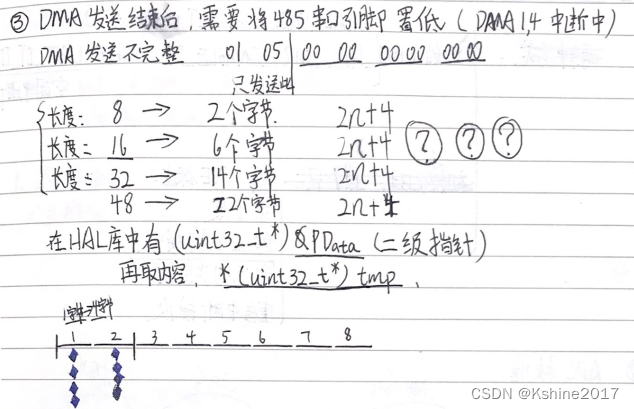 ③ DMA 发送结束后，需要将485串口引脚置低（DMA1,4 中断中）
DMA 发送不完整 01 05 00 00 00 00 00 00
只发送
长度: 8 → 2个字节. 2n+4
长度: 16 → 6个字节 2n+4
长度: 32 → 14个字节 2n+4
48 → 22个字节 2n+4
? ? ?
在HAL库中有 (uint32_t*)&pData (二级指针)
再取内容, *(uint32_t*) tmp,
1 2 3 4 5 6 7 8
CSDN @Kshine2017